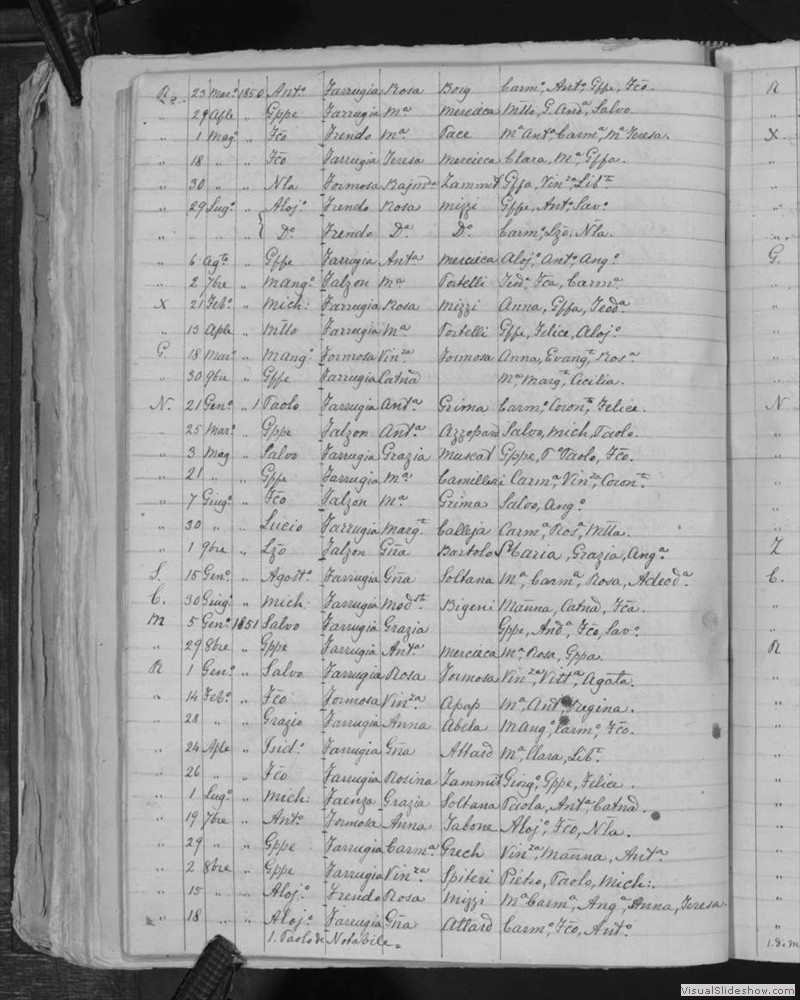 R 23 Mar.o 1850 Ant.o Farrugia Rosa Borg Carm.o, Ant.o, Gffe, Fčo.
" 29 Aple " Gppe Farrugia M.a Mercieca Mtto, G. And.a, Salvo.
" 1 Mag.o " Fčo Frendo M.a Pace M.a Ant.a, Carm.a, M.a Teresa.
" 18 " " Fčo Farrugia Teresa Mercieca Clara, M.a, Gffa.
" 30 " " Nla Formosa Rajm.da Zammit Gffa, Vin.za, Lib.ta
" 29 Lug.o " Aloj.o Frendo Rosa Mizzi Gffe, Ant.o, Sav.o
" " " " D.o Frendo D.a D.o Carm.o, Lzo, Nla.
" 6 Ag.to " Gffe Farrugia Ant.a Mercieca Aloj.o, Ant.o, Ang.o
" 2 7bre " Mang.o Falzon M.a Portelli Teod.a, Fca, Carm.a
X 21 Feb.o " Mich: Farrugia Rosa Mizzi Anna, Gffa, Teod.a
" 13 Aple " Mtto Farrugia M.a Portelli Gffe, Felice, Aloj.o
G. 18 Mar.o " Mang.o Formosa Vin.za Formosa Anna, Evang.ta, Ros.a
" 30 9bre " Gffe Farrugia Catna M.a, Marg.ta, Cecilia.
N. 21 Gen.o " 1 Paolo Farrugia Ant.a Grima Carm.o, Coron.to, Felice.
" 25 Mar.o " Gppe Falzon Ant.a Azzopard Salvo, Mich, Paolo.
" 3 Mag " Salvo Farrugia Grazia Muscat Gppe, P.o Paolo, Fčo.
" 21 " " Gffe Farrugia M.a Camilleri Carm.a, Vin.za, Coron.ta
" 7 Giug.o " Fčo Falzon M.a Grima Salvo, Ang.o
" 30 " " Lucio Farrugia Marg.ta Calleja Carm.a, Ros.a, Mtta.
" 1 9bre " Lzo Falzon Gña Bartolo Caria, Grazia, Ang.a
S. 15 Gen.o " Agost.o Farrugia Gña Soltana M.a, Carm.a, Rosa, Adeod.a
C. 30 Giug.o " Mich. Farrugia Mod.sta Bigeni Manna, Catna, Fča.
M 5 Gen.o 1851 Salvo Farrugia Grazia Gppe, And.a, Fčo, Sav.o
" 29 8bre " Gppe Farrugia Ant.a Mercieca M.a, Rosa, Gppa.
R 1 Gen.o " Salvo Farrugia Rosa Formosa Vin.za, Vitt.a, Agata.
" 14 Feb.o " Fčo Formosa Vin.za Apap M.a, Ant.a, Regina.
" 28 " " Grazio Farrugia Anna Abela Mang.o, Carm.o, Fčo.
" 24 Aple " Isid.o Farrugia Gña Attard M.a, Clara, Lib.ta
" 26 " " Fčo Farrugia Rosina Zammit Giorg.o, Gppe, Felice.
" 1 Lug.o " Mich: Faenza Grazia Soltana Paola, Ant.a, Catna.
" 19 7bre " Ant.o Formosa Anna Tabone Aloj.o, Fčo, Nla.
" 29 " " Gppe Farrugia Carm.a Grech Vin.za, Manna, Ant.a
" 2 8bre " Gppe Farrugia Vin.za Spiteri Pietro, Paolo, Mich:.
" 15 " " Aloj.o Frendo Rosa Mizzi M.a Carm.a, Ang.a, Anna, Teresa.
" 18 " " Aloj.o Farrugia Gña Attard Carm.o, Fčo, Ant.o
1. Paolo di Notabile.
R
X
G.
N
Z
C.
R
VisualSlideshow.com